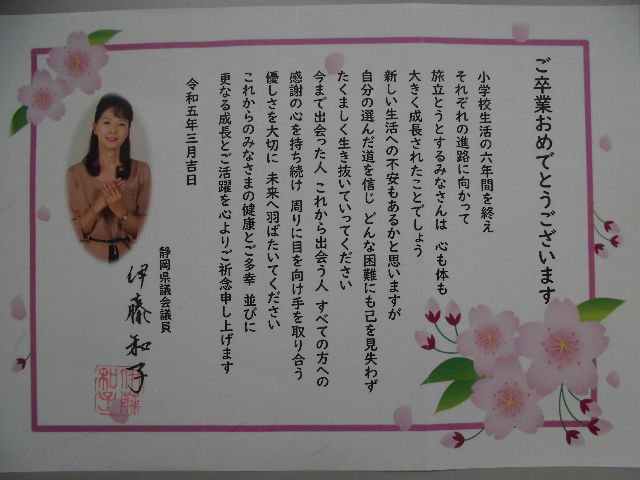 ご卒業おめでとうございます
小学校生活の六年間を終え
それぞれの進路に向かって
旅立とうとするみなさんは 心も体も
大きく成長されたことでしょう
新しい生活への不安もあるかと思いますが
自分の選んだ道を信じ どんな困難にも己を見失わず
たくましく生き抜いていってください
今まで出会った人 これから出会う人 すべての方への
感謝の心を持ち続け 周りに目を向け手を取り合う
優しさを大切に 未来へ羽ばたいてください
これからのみなさまの健康とご多幸 並びに
更なる成長とご活躍を心よりご祈念申し上げます
令和五年三月吉日
静岡県議会議員
伊藤和子
伊藤和子